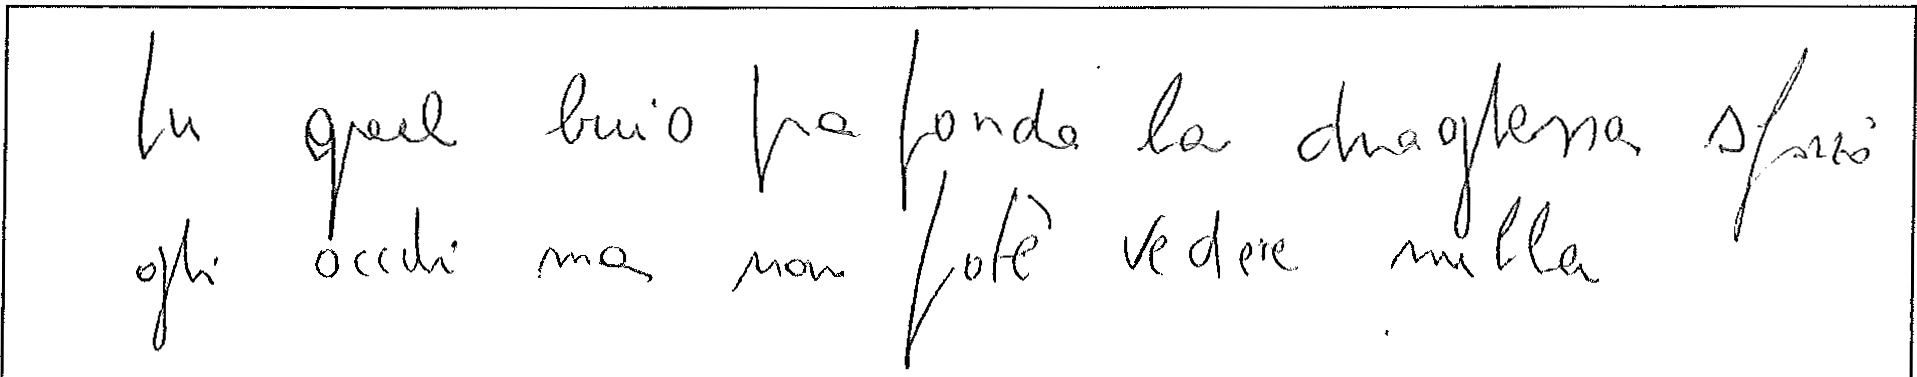 In quel buio fonda la draghessa sforzò
gli occhi ma non potè vedere nulla